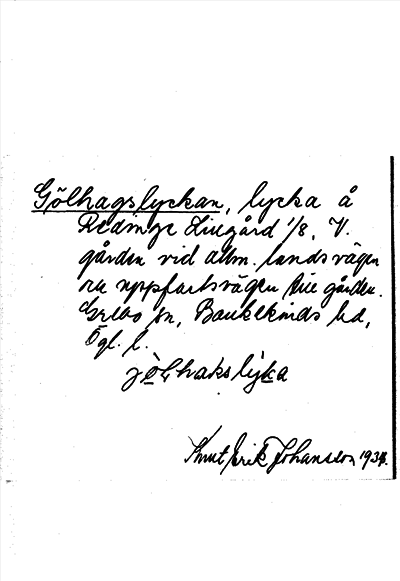 Gölhagslyckan, lycka å
Redinge Lillgård 1/8, V.
gården vid allm. landsvägen
och uppfartsvägen till gården.
Grebo sn, Bankekinds hd,
Ögl. l.
jölhakslyka
Knut Erik Johansson 1934.